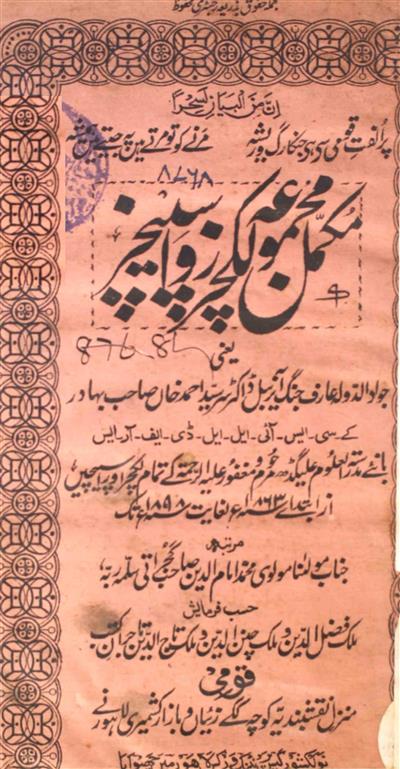 جملہ حقوق بذریعہ رجسٹری محفوظ
اِنَّ مِنَ الْبَیَانِ لَسِحْراً
پر الفت قومی سے ہے جنکا رگ و ریشہ
مرنے کو تو مرتے ہیں پہ جیتے ہیں ہمیشہ
۸۷۶۸
مکمل مجموعہ لکچرز و اسپیچز
یعنی
جواد الدولہ عارف جنگ آنریبل ڈاکٹر سر سید احمد خان صاحب بہادر
کے۔سی۔ایس۔آئی۔ایل۔ایل۔ڈی۔ایف۔آر۔ایس
بانئے مدرسۃ العلوم علیگڈھ مرحوم و مغفور علیہ الرحمتہ کے تمام لکچر اور اسپیچیں
از ابتدائے ۱۸۶۳ء لغایت ۱۸۹۸ء تک
مرتبہ
جناب مولٰنا مولوی محمد امام الدین صاحب گجراتی سلمہ ربہ
حسب فرمائش
ملک فضل الدین و ملک چنن الدین و ملک تاج الدین تاجران کتب
قومی
منزل نقشبندیہ کوچہ ککے زئیاں و بازار کشمیری لاہور نے
نولکشور گیس پرنٹنگ ورکس لاہور میں چھپوایا